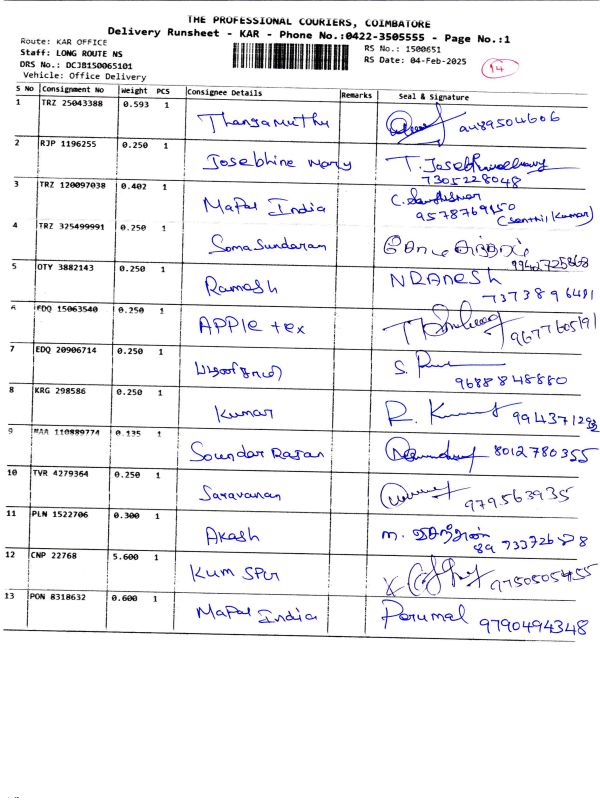 THE PROFESSIONAL COURIERS, COIMBATORE
Delivery Runsheet - KAR - Phone No.:0422-3505555 - Page No.:1
Route: KAR OFFICE
RS No.: 1500651
Staff: LONG ROUTE NS
RS Date: 04-Feb-2025
14
DRS No.: DCJB150065101
Vehicle: Office Delivery
S No Consignment No Weight PCS Consignee Details Remarks Seal & Signature
1 TRZ 25043388 0.593 1 Thangamuthu
2 RJP 1196255 0.250 1 Josebhine mary
7305228048
3 TRZ 120097038 0.402 1 Mapal India
9578769150
(Senthil Kumar)
4 TRZ 325499991 0.250 1 Somasundaran
5 OTY 3882143 0.250 1 Ramesh
6 EDQ 15063540 0.250 1 APPle tex 9677605191
7 EDQ 20906714 0.250 1
9688848880
8 KRG 298586 0.250 1 Kumar R. Kumar
9 MAA 110889774 0.135 1 Soundar Rajan 8012780355
10 TVR 4279364 0.250 1 Saravanan 979563935
11 PLN 1522706 0.300 1 Akash
12 CNP 22768 5.600 1 Kum SPur
13 PON 8318632 0.600 1 Mapal India Perumal 9790494348